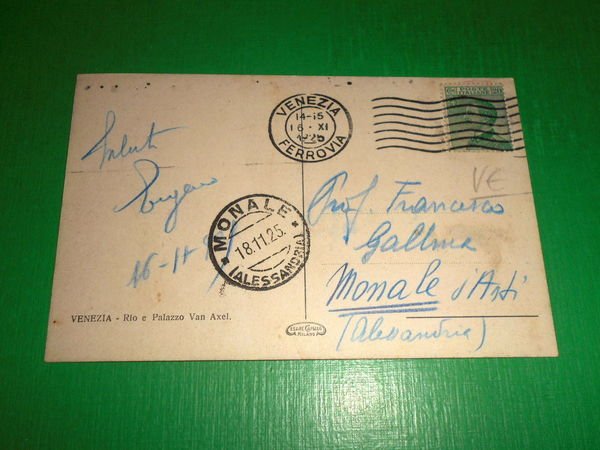 Saluti
Eugenio
16-11-
VENEZIA - Rio e Palazzo Van Axel.
VENEZIA
14-15
16·XI
1925
FERROVIA
MONALE
18.11.25.
(ALESSANDRIA)
VE
Prof. Francesco
Gallina
Monale d'Asti
(Alessandria)
CESARE CAPELLO
MILANO